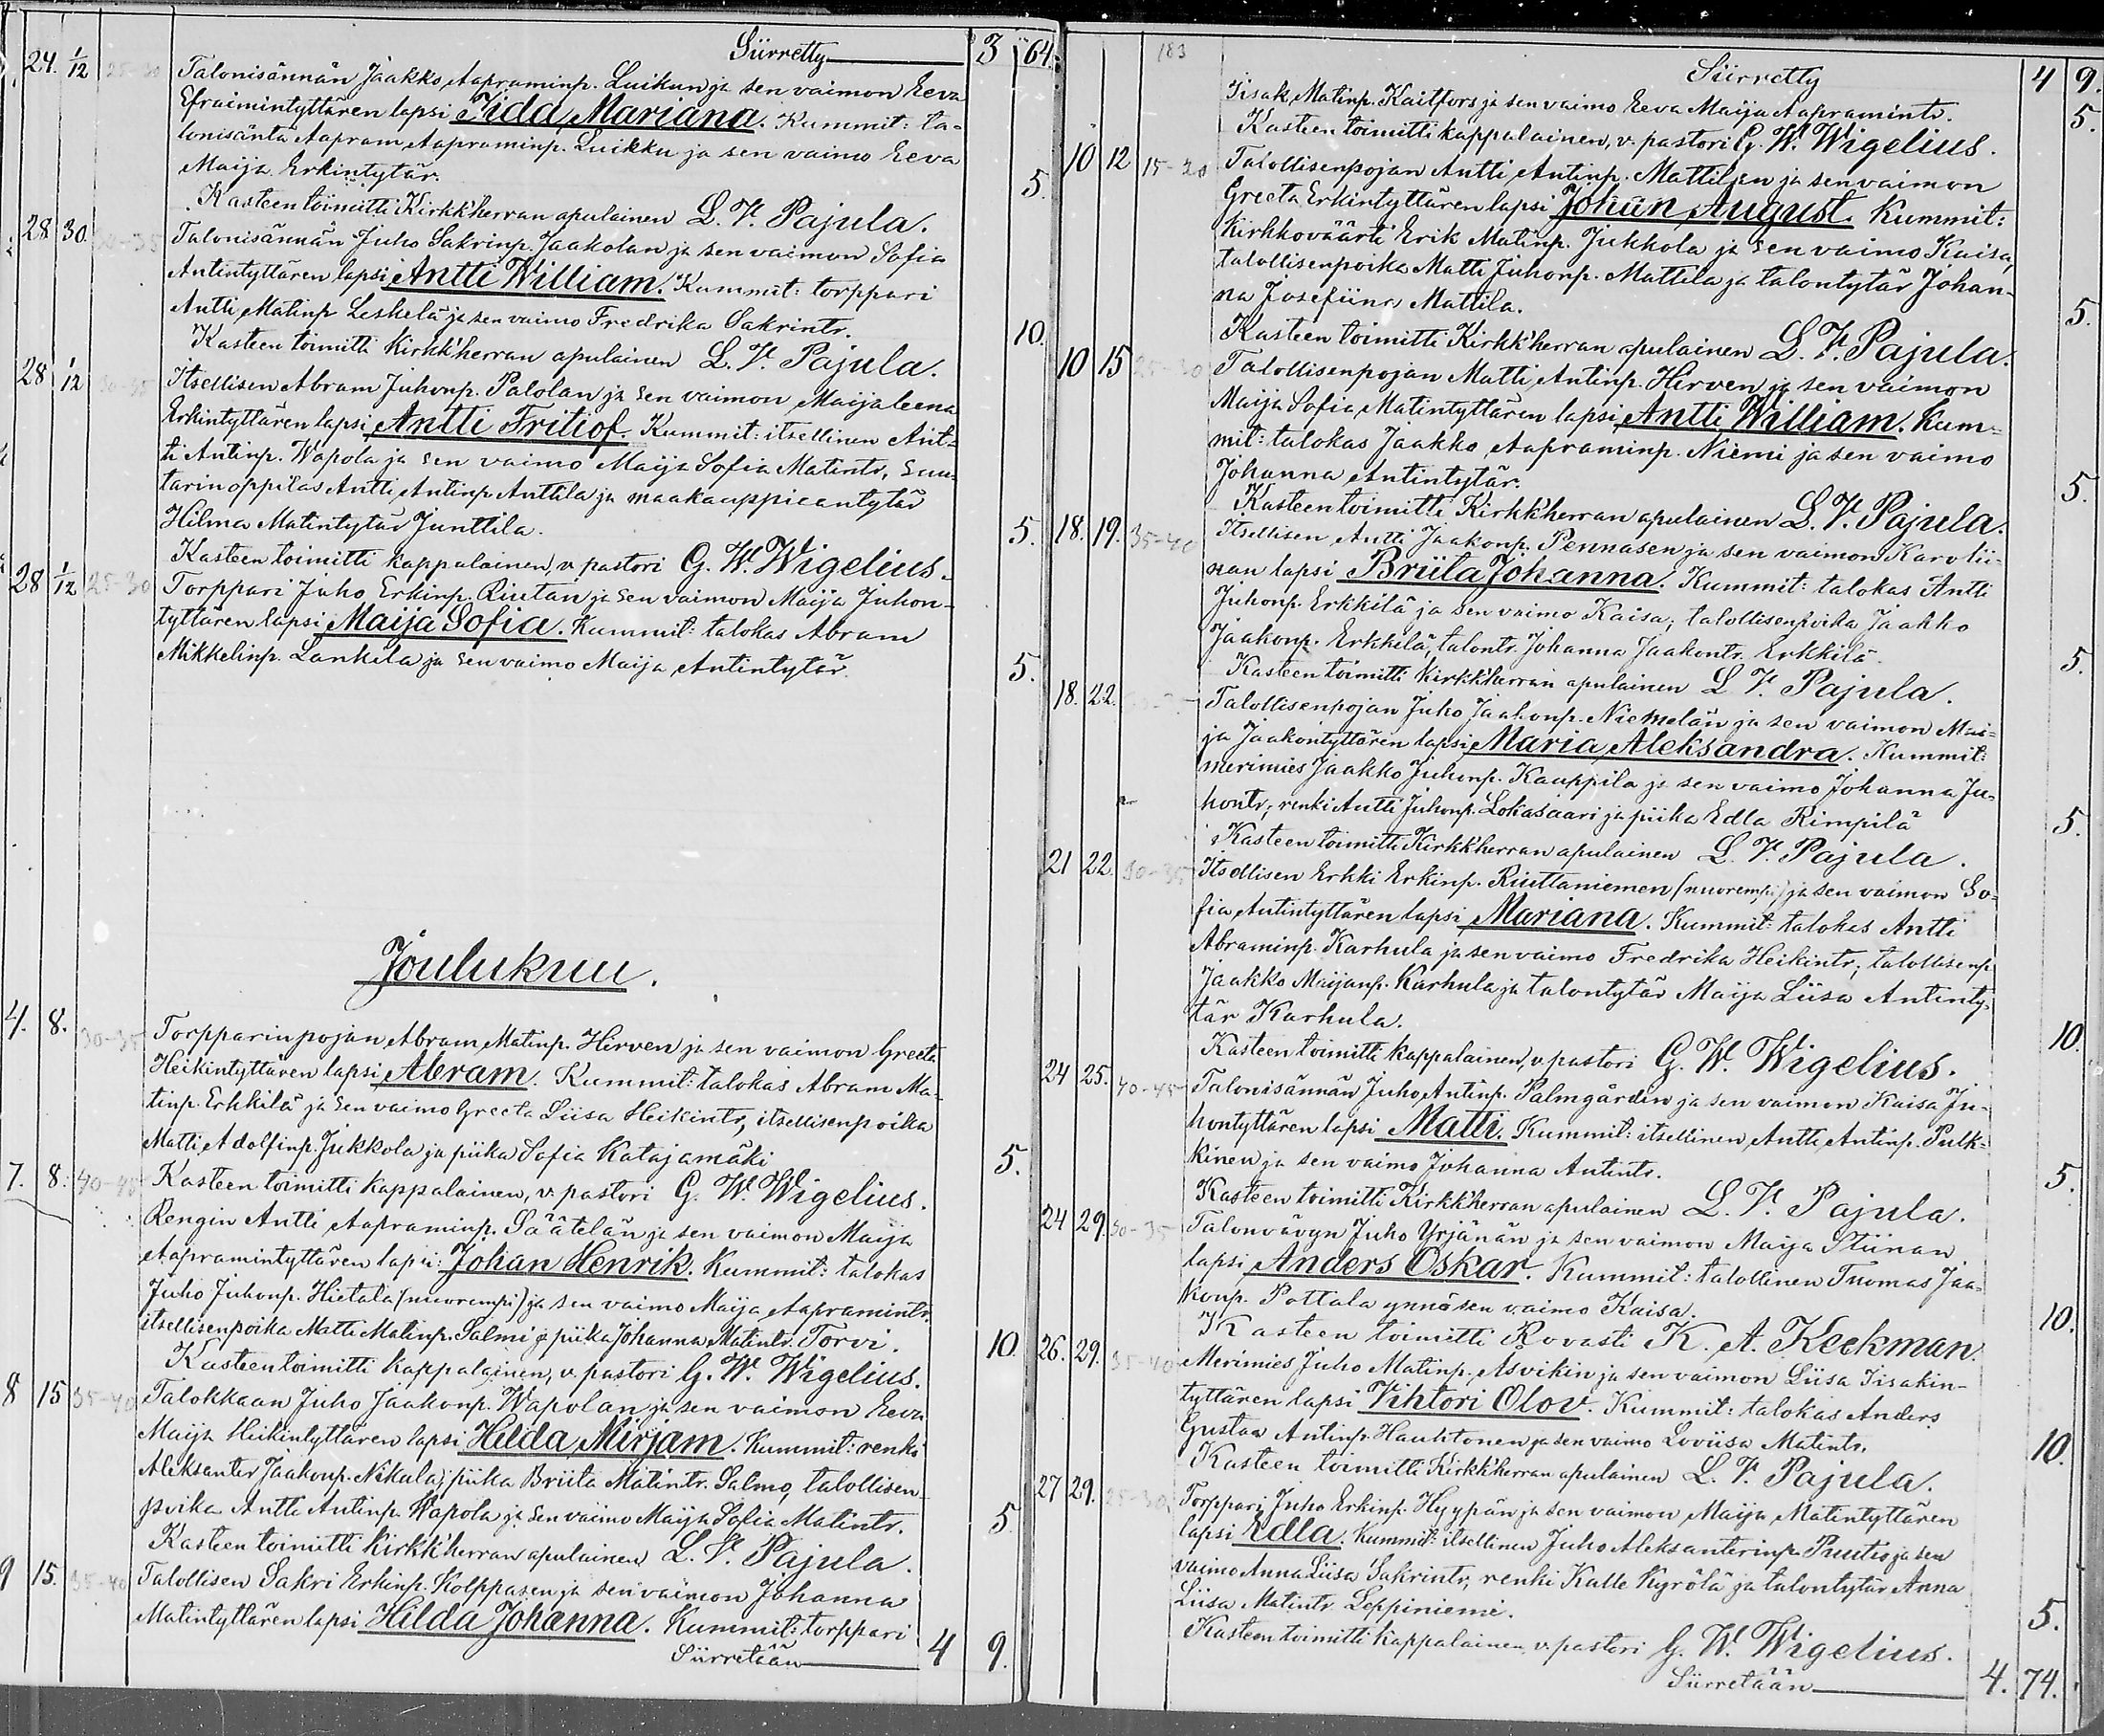 Siirretty 3 64.
24. 1/12 25-30 Talonisännän Jaakko Aapraminp. Luikun ja sen vaimon Eeva
Efraimintyttären lapsi Iida Mariana. Kummit: ta-
lonisäntä Aapram Aapraminp. Luikku ja sen vaimo Eeva
Maija Erkintytär. 5.
Kasteen toimitti Kirkk'herran apulainen L. V. Pajula.
28 30. 30-35 Talonisännän Juho Sakrinp. Jaakolan ja sen vaimon Sofia
Antintyttären lapsi Antti William. Kummit: torppari
Antti Matinp Leskelä ja sen vaimo Fredrika Sakrintr. 10.
Kasteen toimitti Kirkk'herran apulainen L. V. Pajula.
28 1/12 30-35 Itsellisen Abram Juhonp. Palolan ja sen vaimon Maijaleena
Erkintyttären lapsi Antti Fritiof. Kummit: itsellinen Ant-
ti Antinp. Wapola ja sen vaimo Maija Sofia Matintr, suu-
tarinoppilas Antti Antinp Anttila ja maakauppiaantytär
Hilma Matintytär Junttila. 5.
Kasteen toimitti kappalainen, v. pastori G. W. Wigelius.
28 1/12 25-30 Torppari Juho Erkinp. Riutan ja sen vaimon Maija Juhon-
tyttären lapsi Maija Sofia. Kummit: talokas Abram
Mikkelinp. Lankila ja sen vaimo Maija Antintytär. 5.
Joulukuu.
4. 8. 30-35 Torpparinpojan Abram Matinp. Hirven ja sen vaimon Greeta
Heikintyttären lapsi Abram. Kummit: talokas Abram Ma-
tinp. Erkkilä ja sen vaimo Greeta Liisa Heikintr, itsellisenpoika
Matti Adolfinp. Jukkola ja piika Sofia Katajamäki 5.
7. 8. 40-45 Kasteen toimitti kappalainen, v. pastori G. W. Wigelius.
Rengin Antti Aapraminp. Säätelän ja sen vaimon Maija
Aapramintyttären lapsi: Johan Henrik. Kummit: talokas
Juho Juhonp. Hietala (nuorempi) ja sen vaimo Maija Aapramintr.
itsellisenpoika Matti Matinp. Salmi ja piika Johanna Matintr. Torvi. 10.
Kasteen toimitti kappalainen, v. pastori G. W. Wigelius.
8 15 35-40 Talokkaan Juho Jaakonp. Wapolan ja sen vaimon Eeva
Maija Heikintyttären lapsi Hilda Mirjam. Kummit: renki
Aleksanter Jaakonp. Nikula, piika Briita Matintr. Salmo, talollisen-
poika Antti Antinp. Wapola ja sen vaimo Maija Sofia Matintr. 5
Kasteen toimitti Kirkk'herran apulainen L. V. Pajula.
9 15. 35-40 Talollisen Sakri Erkinp. Kolppasen ja sen vaimon Johanna
Matintyttären lapsi Hilda Johanna. Kummit: torppari
Siirretään 4 9.
183
Siirretty 4 9.
Iisak Matinp. Kaitfors ja sen vaimo Eeva Maija Aapramintr. 5.
Kasteen toimitti kappalainen, v. pastori G. W. Wigelius.
10 12 15-20 Talollisenpojan Antti Antinp. Mattilan ja sen vaimon
Greeta Erkintyttären lapsi Johan August. Kummit:
Kirkkoväärti Erik Matinp. Jukkola ja sen vaimo Kaisa,
talollisenpoika Matti Juhonp. Mattila ja talontytär Johan-
na Josefiina Mattila. 5.
Kasteen toimitti Kirkk'herran apulainen L. V. Pajula.
10 15 25-30 Talollisenpojan Matti Antinp. Hirven ja sen vaimon
Maija Sofia Matintyttären lapsi Antti William. Kum-
mit: talokas Jaakko Aapraminp. Niemi ja sen vaimo
Johanna Antintytär. 5.
Kasteen toimitti Kirkk'herran apulainen L. V. Pajula.
18. 19. 35-40 Itsellisen Antti Jaakonp. Pennasen ja sen vaimon Karolii-
nan lapsi Briita Johanna. Kummit: talokas Antti
Juhonp. Erkkilä ja sen vaimo Kaisa, talollisenpoika Jaakko
Jaakonp. Erkkilä, talontr. Johanna Jaakontr. Erkkilä. 5.
Kasteen toimitti Kirkk'herran apulainen L. V. Pajula.
18. 22. Talollisenpojan Juho Jaakonp. Niemelän ja sen vaimon Mai-
ja Jaakontyttären lapsi Maria Aleksandra. Kummit:
merimies Jaakko Juhonp. Kauppila ja sen vaimo Johanna Ju-
hontr, renki Antti Juhonp. Lokasaari ja piika Edla Rimpilä 5.
Kasteen toimitti Kirkk'herran apulainen L. V. Pajula.
21 22. 30-35 Itsellisen Erkki Erkinp. Riuttaniemen (nuorempi) ja sen vaimon So-
fia Antintyttären lapsi Mariana. Kummit: talokas Antti
Abraminp. Karhula ja sen vaimo Fredrika Heikintr, talollisenp
Jaakko Maijanp. Karhula ja talontytär Maija Liisa Antinty-
tär Karhula. 10.
Kasteen toimitti kappalainen, v. pastori G. W. Wigelius.
24 25. 40-45 Talonisännän Juho Antinp. Palmgårdin ja sen vaimon Kaisa Ju-
hontyttären lapsi Matti. Kummit: itsellinen Antti Antinp. Pulk-
kinen ja sen vaimo Johanna Antintr. 5.
Kasteen toimitti Kirkk'herran apulainen L. V. Pajula.
24 29. 30-35 Talonvävyn Juho Yrjänän ja sen vaimon Maija Stiinan
lapsi Anders Oskar. Kummit: talollinen Tuomas Jaa-
konp. Pottala ynnä sen vaimo Kaisa. 10.
Kasteen toimitti Rovasti K. A. Keckman.
26. 29. 35-40 Merimies Juho Matinp. Asvikin ja sen vaimon Liisa Iisakin-
tyttären lapsi Vihtori Olov. Kummit: talokas Anders
Gustaa Antinp. Hauhtonen ja sen vaimo Loviisa Matintr. 10.
Kasteen toimitti Kirkk'herran apulainen L. V. Pajula.
27 29. 25-30 Torppari Juho Erkinp. Hyypän ja sen vaimon Maija Matintyttären
lapsi Edla. Kummit: itsellinen Juho Aleksanterinp. Puutio ja sen
vaimo Anna Liisa Sakrintr, renki Kalle Kyrölä ja talontytär Anna
Liisa Matintr. Leppiniemi. 5.
Kasteen toimitti kappalainen, v. pastori G. W. Wigelius.
Siirretään 4. 74.